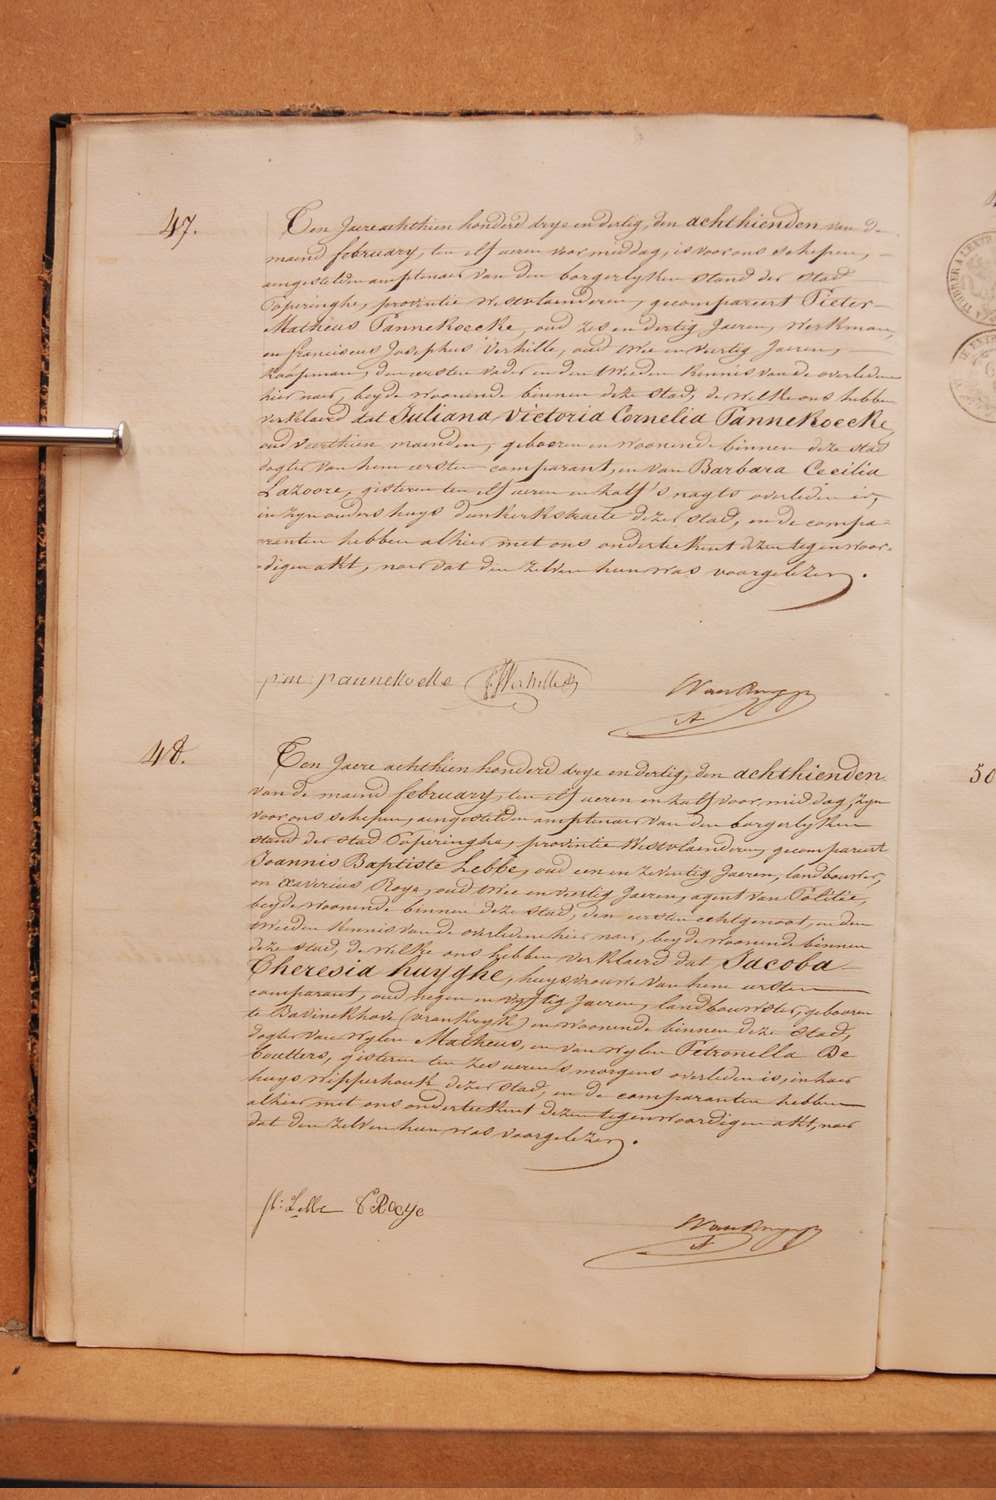 47.
Ten Jaere achthien honderd drye en dertig, den achthienden van de
maend february, ten elf aeren voor middag, is voor ons schepen,
aengestelden amptenaer van den borgerlyken stand der stad
Poperinghe, provintie Westvlaenderen, gecompareert Pieter
Matheus Pannekoecke, oud zes en dertig Jaeren, Werkman,
en franciscus Josephus Verhille, oud twee en veertig Jaeren,
koopman, den eersten vader en den tweeden kennis van de overledene
hier naer, beyde woonende binnen deze stad, de welke ons hebben
verklaerd dat Juliana Victoria Cornelia Pannekoecke,
oud veerthien maenden, gebooren en woonende binnen deze stad
dogter van hem eersten comparant, en van Barbara Cecilia
Lazoore, gisteren ten elf aeren en half 's nagts overleden is,
in zyn ouders huys dunkerkstraete dezer stad, en de compa-
renten hebben alhier met ons onderteekent dezen tegenwoor-
digen akt, naer dat den zelven hun was voorgelezen.
pm pannekoeke
Verhille
48.
Ten Jaere achthien honderd drye en dertig, den achthienden
van de maend february, ten elf aeren en half voor middag, zyn
voor ons schepen, aengestelden amptenaer van den borgerlyken
stand der stad Poperinghe, provintie Westvlaenderen, gecompareert
Joannis Baptiste Lebbe, oud een en zeventig Jaeren, landbouwer,
en Xaverius Roye, oud twee en veertig Jaeren, agent van Politie,
beyde woonende binnen deze stad, den eersten echtgenoot, en den
tweeden kennis van de overledene hier naer, beyde woonende binnen
deze stad, de welke ons hebben verklaerd dat Jacoba
Theresia huyghe, huysvrouwe van hem eersten
comparant, oud negen en vyftig Jaeren, landbouwster, gebooren
te Bavinckhove (vrankryk) en woonende binnen deze stad,
dogter van wylen Matheus, en van wylen Petronella De
Coutters, gisteren ten zes aeren 's morgens overleden is, in haer
huys wipperhoek dezer stad, en de comparanten hebben
alhier met ons onderteekent dezen tegenwoordigen akt, naer
dat den zelven hun was voorgelezen.
Lebbe Roeye
50